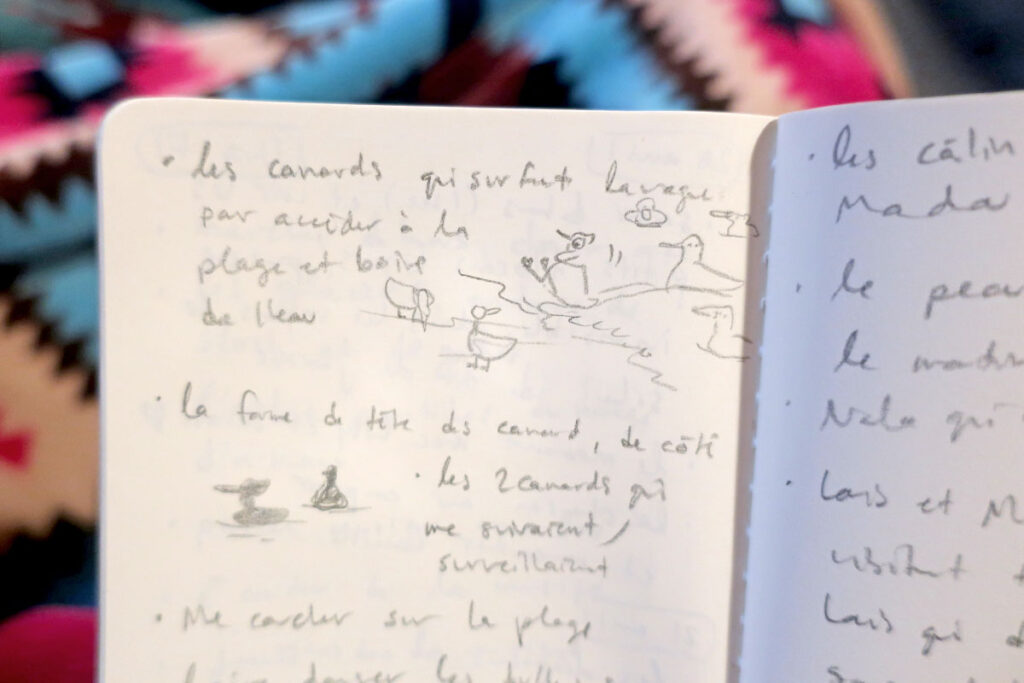 • les canards qui surfent la vague
par accident à la
plage et boire
de l'eau
• la forme de tête des canard, de côté
• les 2 canards qui
me suivaient/
surveillaient
• Me coucher sur la plage
les
• les câlin
Mada
• le
le
• Nala qui
• Lais et M
visitent
Lais qui d